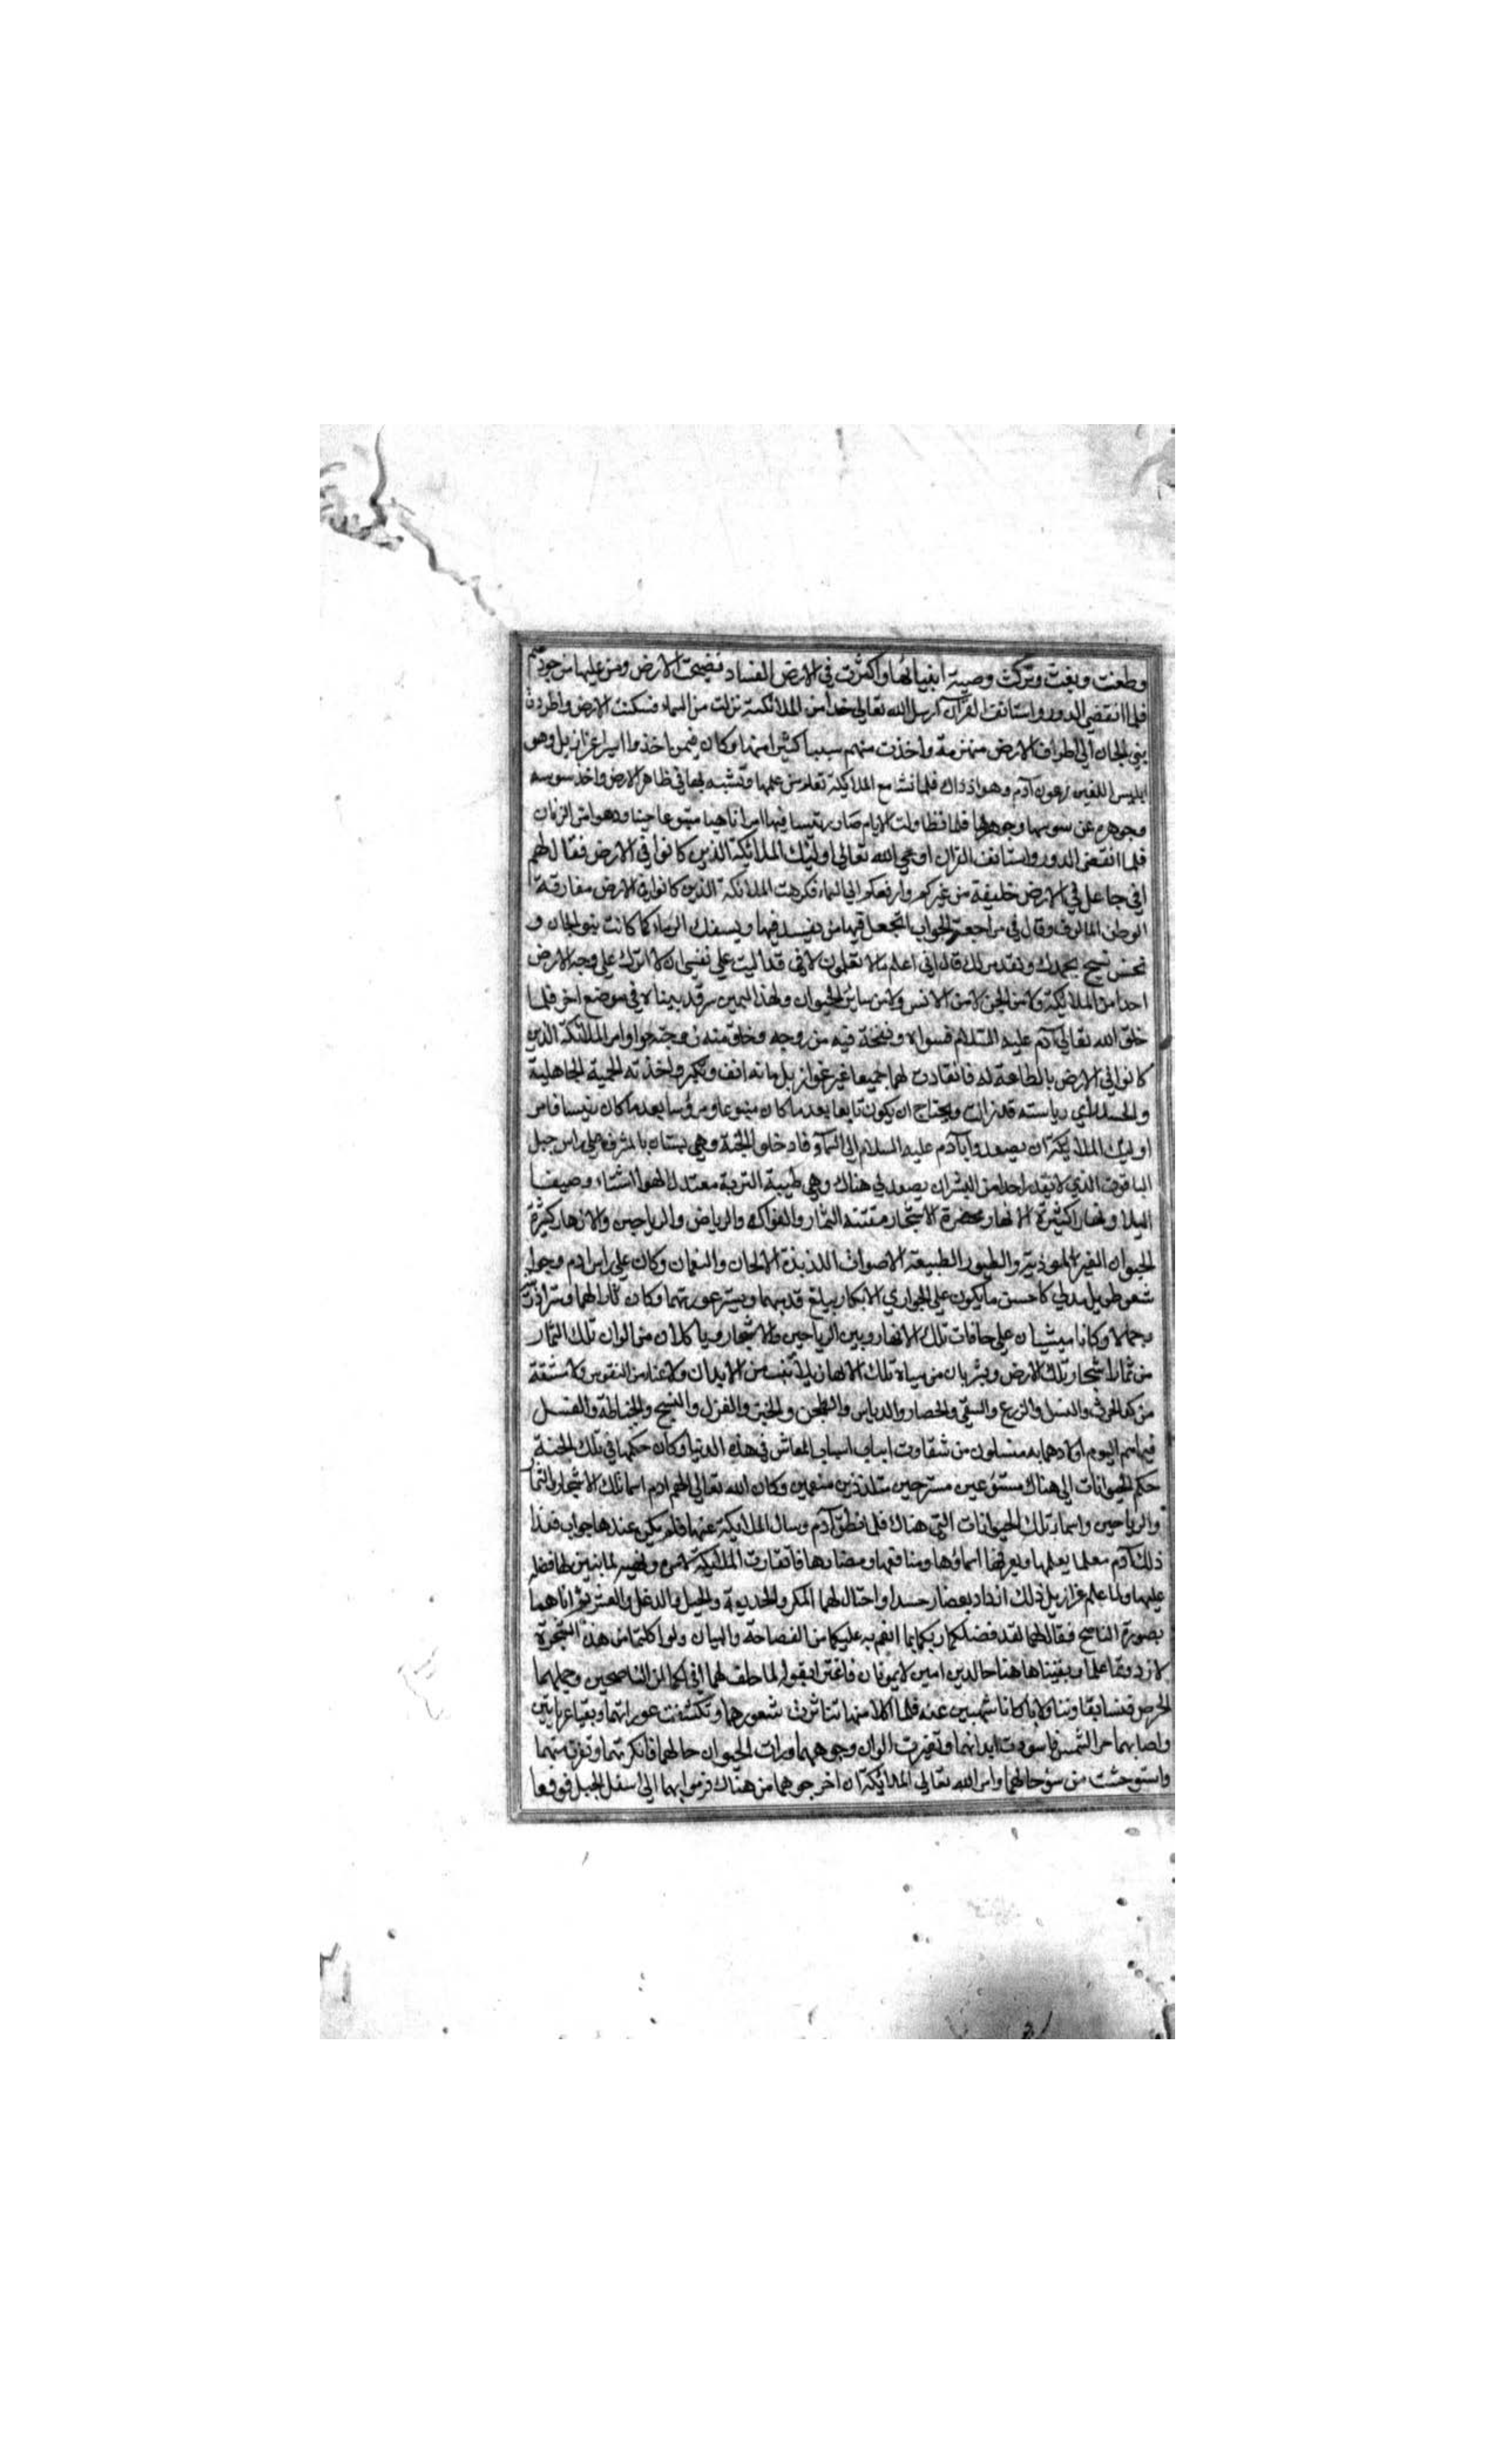 وطغت وبغت وتركت وصية انبيائها واكثرت في الارض الفساد فضجت الارض ومن عليها من جورهم
فلما انقضي الدور واستانف القرآن ارسل الله تعالى جندا من الملائكة نزلت من السماء فسكنت الارض واطردت
بني الجان الي اطراف الارض منهزمة واخذت منهم سبيا كثيرا منها وكان فيمن اخذوا اسيرا عزازيل وهو
ابليس اللعين فرعون آدم وهو اذ ذاك فلما نشا مع الملائكة تعلم من علمها وتشبه بها في ظاهر الارض واخذ سوسه
وجوهره عن سوسها وجوهرها فلما تطاولت الايام صار رئيسا فيها امرا ناهيا متبوعا حينا ودهوا من الزمان
فلما انقضى الدور واستانف القران اوحي الله تعالى اوليك الملائكة الذين كانوا في الارض فقال لهم
اني جاعل في الارض خليفة من غيركم وارفعكم الي السماء فكرهت الملائكة الذين كانوا في الارض مفارقة
الوطن المالوف وقال في مراجعة الجواب اتجعل فيها من يفسد فيها ويسفك الدماء كما كانت بنو الجان و
نحن نسبح بحمدك ونقدس لك قال اني اعلم ما لا تعلمون لاني قد اليت علي نفسي ان لا اترك علي وجه الارض
احدا من الملائكة ولا من الجن لا من الانس ولا من ساير الحيوان ولهذا اليمين سر قد بيناه في موضع اخر فلما
خلق الله تعالى آدم عليه السلام فسواه ونفخة فيه من روحه وخلق منه زوجته حوا وامر الملائكة الذين
كانوا في الارض بالطاعة له فانقادت لهما جميعا غير عزازيل فانه انف وتكبر واخذته الحمية الجاهلية
والحسد لما راي رياسته قد زالت ويحتاج ان يكون تابعا بعد ما كان متبوعا ومرؤسا بعد ما كان رئيسا فامر
اوليك الملائكة ان يصعدوا بآدم عليه السلام الى السماء فادخلوا الجنة وهي بستان بالمشرق علي راس جبل
الياقوت الذي لا يقدر احد من البشر ان يصعد لي هناك وهي طيبة التربة معتدل الهوا شتاء وصيفا
ليلا ونهارا كثيرة الانهار مخضرة الاشجار مفتنة الثمار والفواكه والرياض والرياحين والازهار كثيرة
الحيوان الغير الموذية والطيور الطيبة الاصوات اللذيذة الالحان والنغمات وكان علي راس ادم وحوا
شعر طويل مدلي كاحسن ما يكون علي الجواري الابكار يبلغ قدميهما ويستر عورتهما وكان دثارا لهما وسترا وزينة
وجمالا وكانا يمشيان علي حافات تلك الانهار وبين الرياحين والاشجار وياكلان من الوان تلك الثمار
من ثمار اشجار تلك الارض ويشربان من مياه تلك الانهار بلا تعب من الابدان ولا عنا من النفوس ولا مشقة
من كد الحرث والنسل والزرع والسقي والحصار والدياس والطحن والخبز والغزل والنسج والخياطة والغسل
فيما هم اليوم اولادهما به مبتلون من شقاوت اسباب المعاش في هذه الدنيا وكان حكمها في تلك الجنة
حكم الحيوانات الي هناك مستوعين مسترحين متلذذين منعمين وكان الله تعالى الهم ادم اسما تلك الاشجار والثما
والرياحين واسمار تلك الحيوانات التي هناك فلما نطق آدم وسال الملائكة عنها فلم يكن عندها جواب فغدا
ذلك آدم معلما يعلمها ويعرفها اسماؤها ومنافعها ومضارها فانقادت الملائكة لامره ونهيه لما تبين لها فضله
عليها ولما علم عزازيل ذلك ازداد بغضا وحسدا واحتال لهما المكر والخديعة والحيل والدغل والغش ثم اتاهما
بصورة الناصح فقال لهما لقد فضلكما ربكما بما انعم به عليكما من الفصاحة والبيان ولو اكلتما من هذه الشجرة
لازددتما علما وبقيتما ها هنا خالدين امنين لا تموتان فاغترا بقوله لما حلف لهما اني لكما لمن الناصحين وحملهما
الحرص فتسابقا وتناولا ما كانا منهيين عنه فلما اكلا منها تناثرت شعورهما وتكشفت عوراتهما وبقيا عريانين
واصابهما حر الشمس فاسودت ابدانهما وتغيرت الوان وجوههما ورات الحيوان حالهما فانكرتهما ونفرت منهما
واستوحشت من سؤ حالهما وامر الله تعالى الملائكة ان اخرجوهما من هناك فرموا بهما الى اسفل الجبل فوقعا